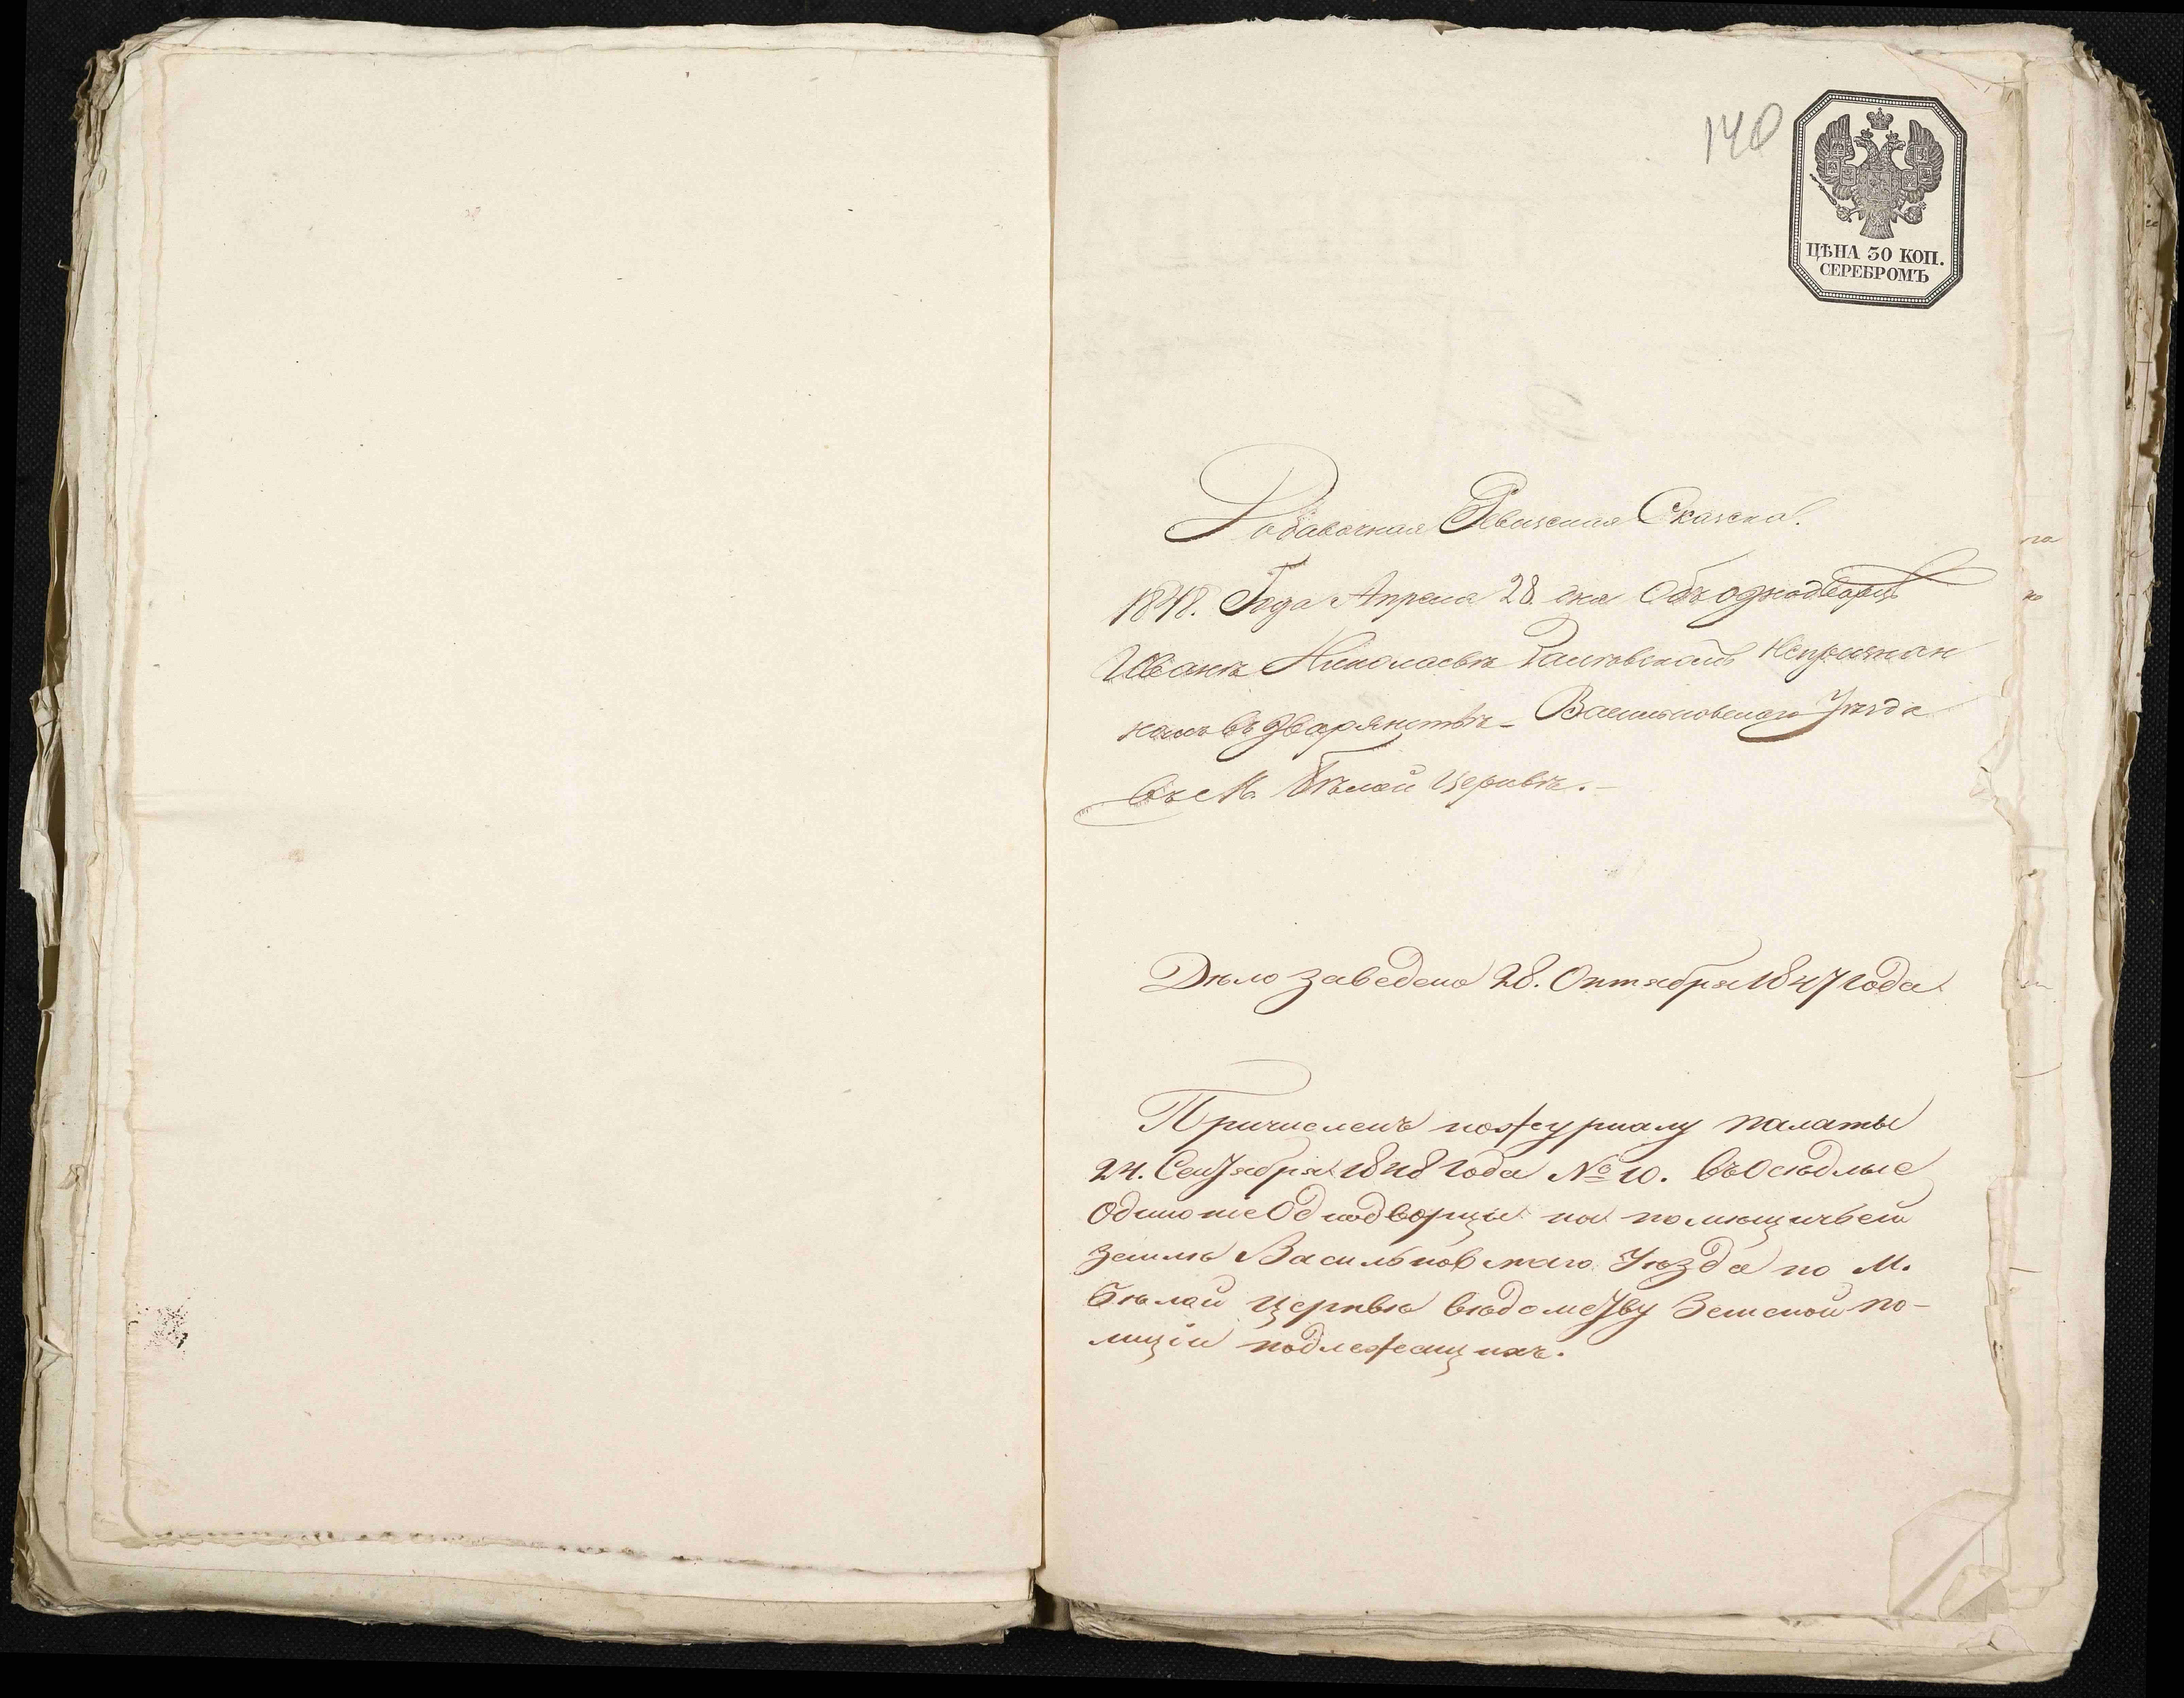 140
ЦѢНА 30 КОП.
СЕРЕБРОМЪ
Добавочная Ревизская Сказска.
1848. Года Апреля 28. дня Объ однодворцѣ
Иванѣ Николаевѣ непризнан
номъ въ дворянствѣ - Васильковскаго Уѣзда
въ М. Бѣлой Церквѣ. -
Дѣло заведено 28. Октября 1847 года
Причисленъ по журналу палаты
24. Сентября 1848 года № 10. въ Осѣдлые
Одинокіе Однодворцы на помѣщичьей
землѣ Васильковскаго Уѣзда по М.
Бѣлой Церквѣ вѣдомству Земской по-
лиціи подлежащихъ.